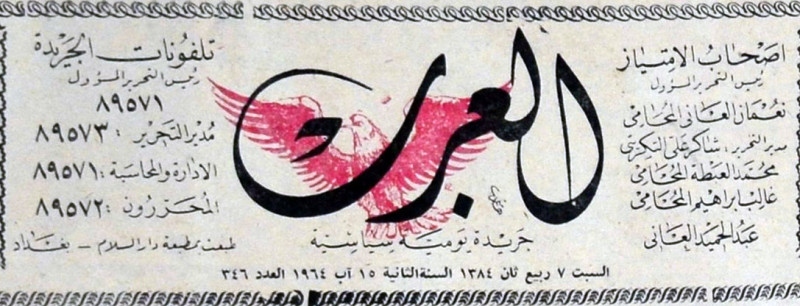 اصحاب الامتياز
رئيس التحرير المسؤول
نعمان العاني المحامي
مدير التحرير: شاكر علي التكريتي
محمد العبطة المحامي
غالب ابراهيم المحامي
عبد الحميد العاني
العرب
جريدة يومية سياسية
تلفونات الجريدة
رئيس التحرير المسؤول
٨٩٥٧١
مدير التحرير : ٨٩٥٧٣
الادارة والمحاسبة : ٨٩٥٧١
المحررون : ٨٩٥٧٢
طبعت بمطبعة دار السلام – بغداد
السبت ٧ ربيع ثان ١٣٨٤ السنة الثانية ١٥ آب ١٩٦٤ العدد ٣٤٦